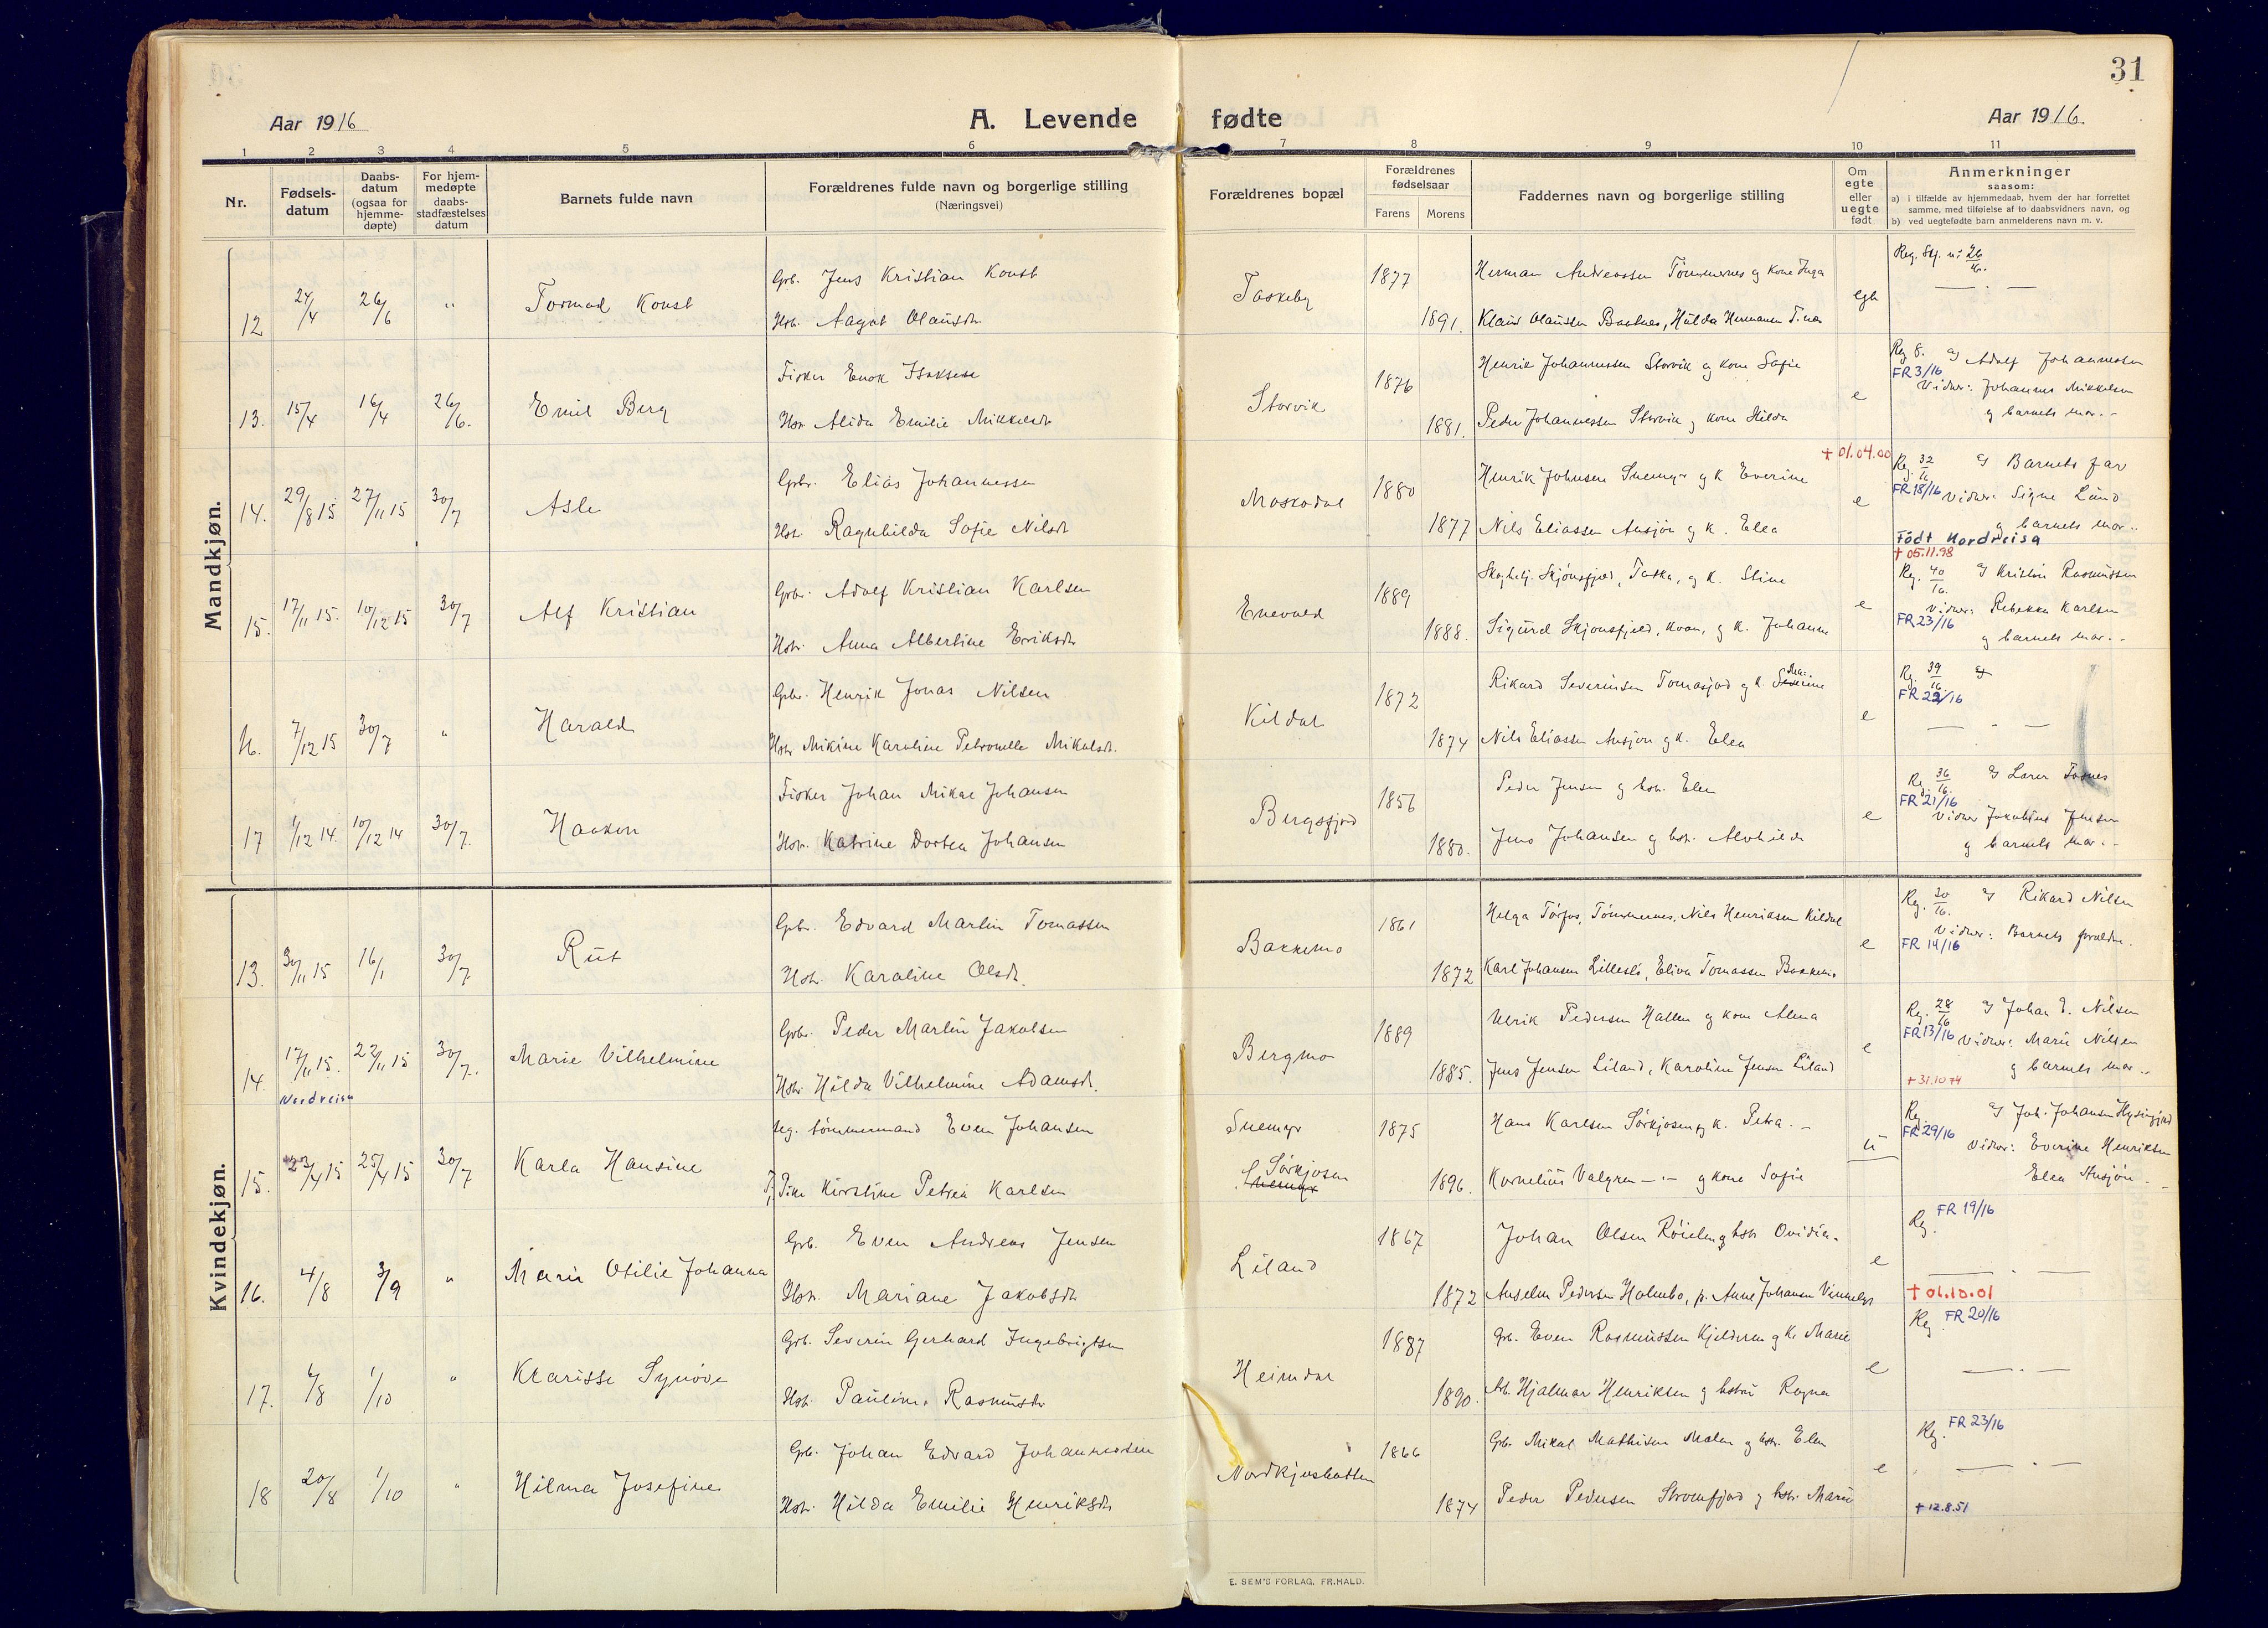 31
Aar 1916
A. Levende fødte
Aar 1916.
1 2 3 4 5 6 7 8 9 10 11
Nr.
Fødsels-
datum
Daabs-
datum
(ogsaa for
hjemme-
døpte)
For hjem-
medøpte
daabs-
stadfæstelses
datum
Barnets fulde navn
Forældrenes fulde navn og borgerlige stilling
(Næringsvei)
Forældrenes bopæl
Forældrenes
fødselsaar
Farens Morens
Faddernes navn og borgerlige stilling
Om
egte
eller
uegte
født
Anmerkninger
saasom:
a) i tilfælde av hjemmedaab, hvem der har forrettet
samme, med tilføielse af to daabsvidners navn, og
b) ved uegtefødte barn anmelderens navn m. v.
Mandkjøn.
12 24/4 26/6 " Tormod Konst
Grb. Jens Kristian Konst
Hstr. Aagot Olausdtr.
Taskeby 1877 1891.
Herman Andreassen Tømmernes og kone Inga
Klaus Olaussen Baatnes, Hulda Hermansen
13. 15/4 16/4 26/6. Emil Berg
Fisker Enok Isaksen
Hstr. Alida Emilie Mikkelsdtr
Storvik 1876 1881.
Henrik Johannessen Storvik og kone Sofie
Peder Johannessen Storvik og kone Hilda
e
Reg 8. Adolf Johannessen
FR 3/16
Vidner: Johannes Mikkelsen
og barnets mor.
14. 29/8 15 27/11 15 30/7 Asle
Grbr. Elias Johannessen
Hstr. Ragnhilda Sofie Nilsdtr
1880 1877
Henrik Johnsen Snemyr og k. Everine
Nils Eliassen Ansjøn og k. Elea
e
+ 01.04.00
Reg. 32/16 Barnets far
FR 18/16 Vidner: Signe Lund
og barnets mor.
Født Nordreisa
15. 17/11 15. 10/12 15 30/7 Alf Kristian
Grbr. Adolf Kristian Karlsen
Hstr. Anna Albertine Eriksdtr
Enevold 1889 1888.
Skjønsfjeld, Taska, og k. Stine
Sigurd Skjønsfjeld, og k. Johanne
e
+ 05.11.98
Reg. 40/16. Kristin Rasmussen
Vidner: Rebekka Karlsen
FR 23/16
og barnets mor.
16. 7/12 15 30/7 " Harald
Grbr. Henrik Jonas Nilsen
Hstr Mikine Karoline Petronelle Mikalsdtr.
Kildal 1872 1874
Rikard Severinsen Tomasjord og k.
Nils Eliassen Ansjøn og k. Elea
e
Reg. 39/16
FR 22/16
17 1/12 14. 10/12 14 30/7. Haakon
Fisker Johan Mikal Johansen
Hstr. Katrine Dortea Johansen
Bergsfjord 1856 1880.
Peder Jensen og hstr. Elen
Jens Johansen og hstr. Alvhilda
e
Reg. 36/16.
FR 21/16
Vidner
og barnets mor.
Kvindekjøn.
13. 30/11 15 16/1 30/7 Rut
Grbr. Edvard Martin Tomassen
Hstr. Karoline Olsdtr.
Bakkemo 1861 1872
Helga Torfos, Tømmernes, Nils Henriksen Kildal
Karl Johansen Lilleslo, Eliva Tomassen Bakkemo
e
Reg. 30/16. Rikard Nilsen
Vidner: Barnets forældre.
FR 14/16
14. 17/11 15. 22/11 15 30/7. Marie Vilhelmine
Nordreisa
Grbr. Peder Martin Jakobsen
Hstr. Hilda Vilhelmine Adamsdtr.
Bergmo 1889 1885.
Ulrik Pedersen Hallen og kone Alma
Jens Jensen Liland, Karoline Jensen Liland
e
Reg. 28/16 Johan E. Nilsen
FR 13/16 Vidner: Marie Nilsen
og barnets mor.
+ 31.10 74
15. 23/4 15 25/4 15 30/7 Karla Hansine
tømmermand Even Johansen
Pike Kirstine Petrea Karlsen
Snemyr
Sørkjosen
Snemyr
1875 1896.
Hans Karlsen Sørkjosen og k. Petra.
Kornelius Valgren og kone Sofie
u
Reg. Joh. Johansen
FR 29/16
Vidner: Everine Henriksen
Elea Ansjøn
16. 4/8 3/9 " Marie Otilie Johanna
Grb. Even Andreas Jensen
Hstr. Mariane Jakobsdtr
Liland 1867 1872
Johan Olsen Røielen og hstr Ovidia.
Anselm Pedersen Holmbo, p. Anne Johansen
e
Reg. FR 19/16
+ 01.10.01
17. 6/8 1/10 " Klarisse Synøve
Grb. Severin Gerhard Ingebrigtsen
Hstr. Pauline Rasmusdtr
Heimdal 1887 1890.
Grb. Even Rasmussen Kjelderen og k. Marie
Hjalmar Henriksen og hstru Ragna
e
Reg. FR 20/16
18 20/8 1/10 " Hilma Josefine
Grb. Johan Edvard Johannessen
Hstr. Hilda Emilie Henriksdtr
Nordkjosbotten 1866 1874
Grb. Mikal Mathisen Malen og hstr. Elen
Peder Pedersen Stromfjord og hstr. Marie
e
Reg. FR 23/16
+ 12.8.51
E. SEM'S FORLAG, FR.HALD.